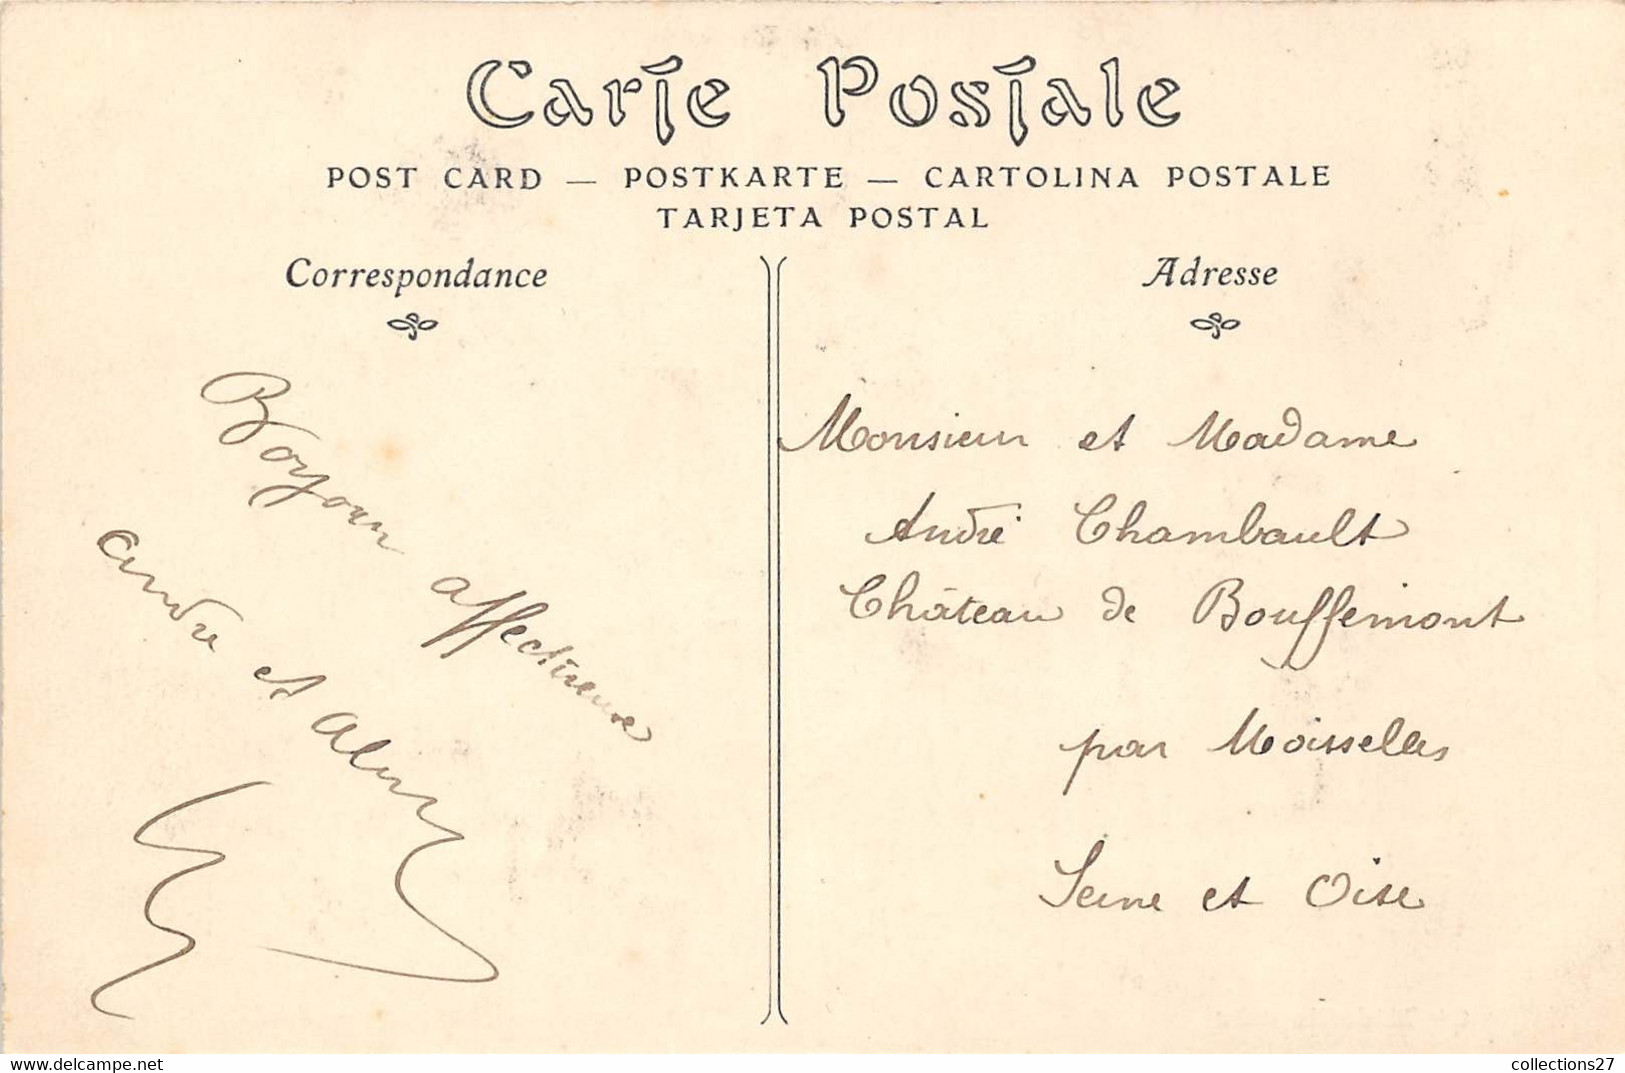 Carte Postale
POST CARD — POSTKARTE — CARTOLINA POSTALE
TARJETA POSTAL
Correspondance
Boyour affectueuse
Andre et Aline
Adresse
Monsieur et Madame
André Chambault
Château de Bouffemont
par Moisselles
Seine et Oise
collections27